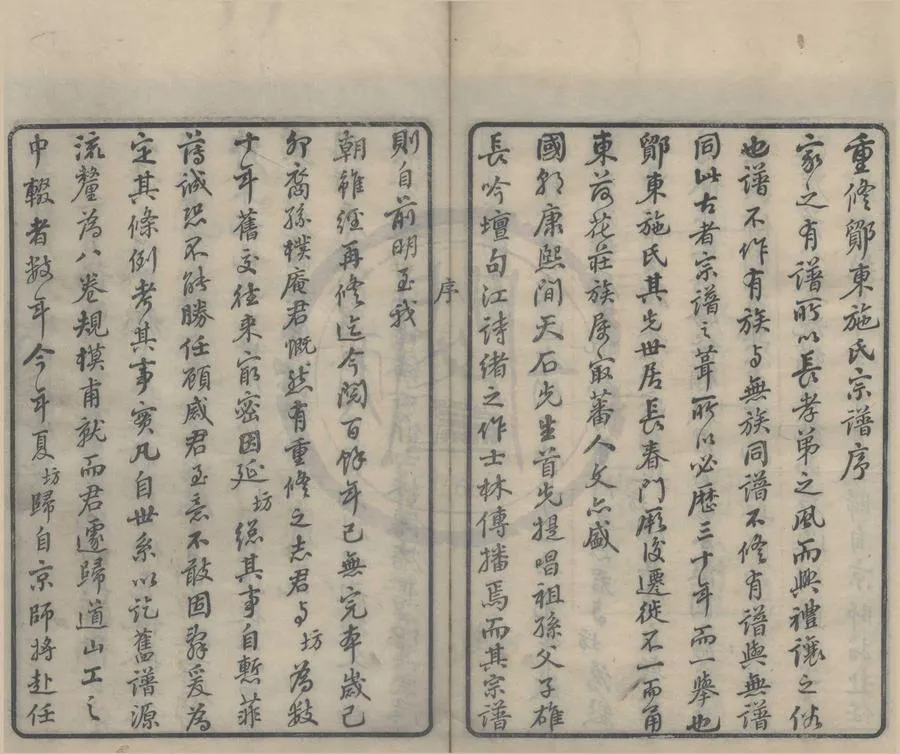 重修鄮東施氏宗譜序
家之有譜所以長孝弟之風而興禮讓之俗
也譜不作有族与無族同譜不修有譜與無譜
同此古者宗譜之葺所以必歷三十年而一舉也
鄮東施氏其先世居長春門厥後遷徙不一而甬
東荷花莊族屬寂蕃人文亦盛
國朝康熙間天石先生首先提唱祖孫父子雄
長吟壇句江詩緒之作士林傳播焉而其宗譜
序
則自前明至我
朝雖經再修迄今閱百餘年已無完本歲己
卯裔孫樸庵君慨然有重修之志君与坊為數
十年舊交往來最密因延坊總其事自慙菲
薄誠恐不能勝任顧感君至意不敢固辭爰為
定其條例考其事實凡自世系以訖舊譜源
流釐為八卷規模甫就而君遽歸道山工之
中輟者數年今年夏坊歸自京師將赴任